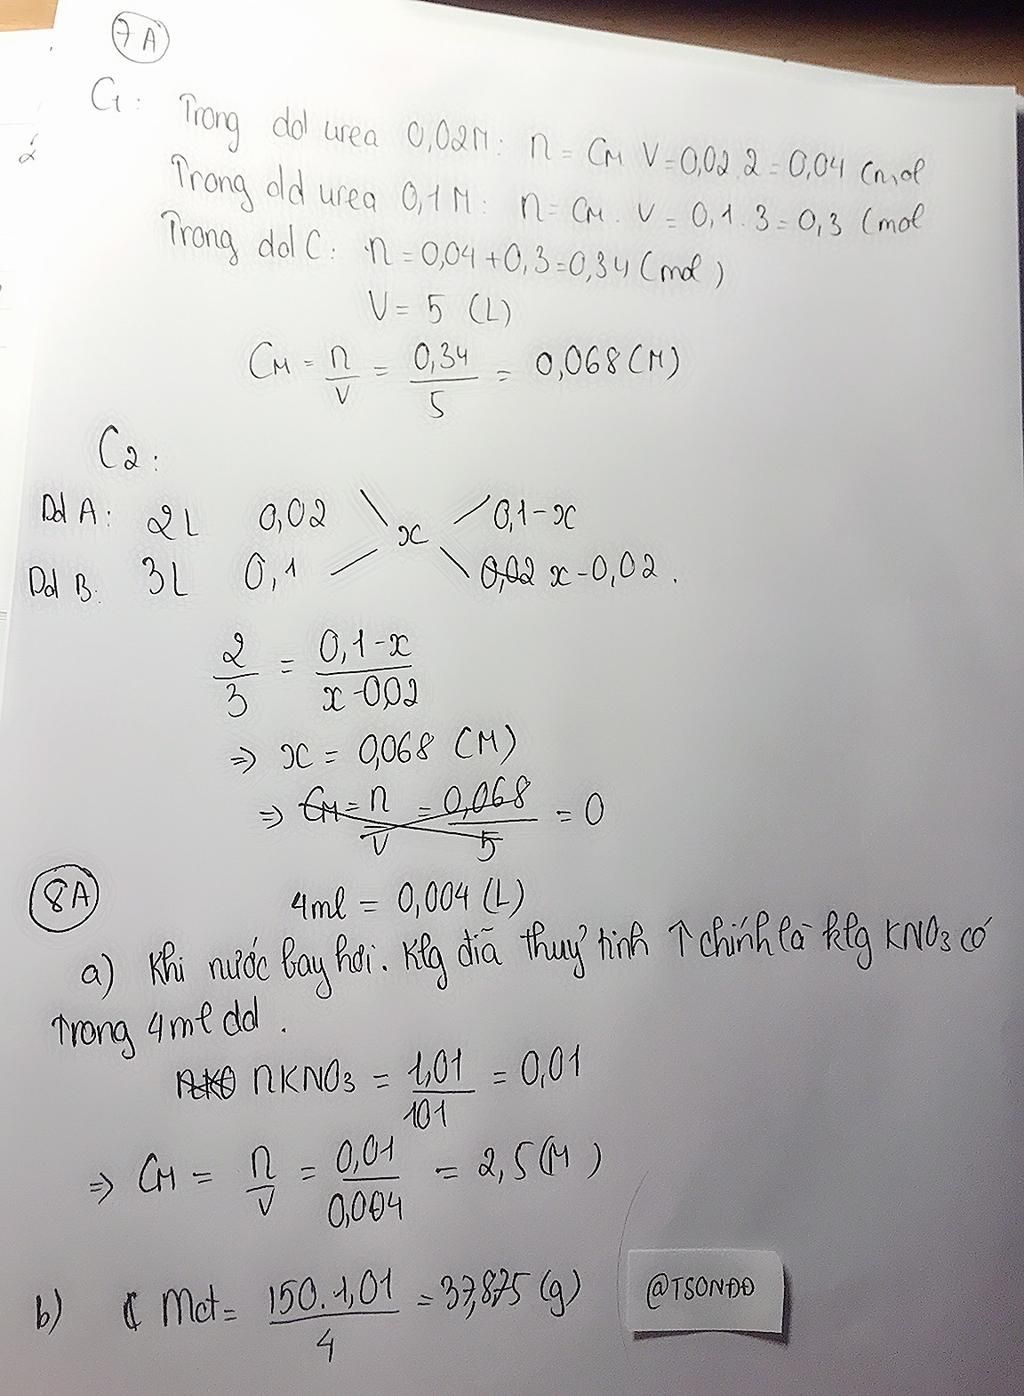 7A
C1: Trong dd urea 0,02M: n = CM V = 0,02.2 = 0,04 (mol
Trong dd urea 0,1M: n = CM. V = 0,1.3 = 0,3 (mol
Trong dd C: n = 0,04+0,3=0,34 (mol)
V = 5 (L)
CM = n/V = 0,34/5 = 0,068 (M)
C2:
Dd A: 2L 0,02 0,1-x
x
Dd B: 3L 0,1 0,02 x-0,02.
2/3 = 0,1-x/x-0,02
=> x = 0,068 (M)
=> CM = n/V = 0,068/5 = 0
8A
4ml = 0,004 (L)
a) Khi nước bay hơi. Klg đĩa thuỷ tinh ↑ chính là klg KNO3 có
trong 4ml dd.
nKO nKNO3 = 1,01/101 = 0,01
=> CM = n/V = 0,01/0,004 = 2,5 (M)
b) Mct = 150.1,01/4 = 37,875 (g)
@TSONDD